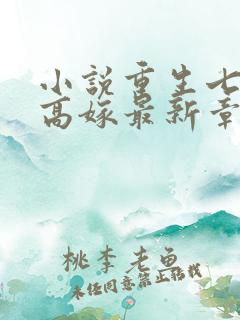 小説重生七
高嫁最新章
桃李老鱼
未经同意禁止转载